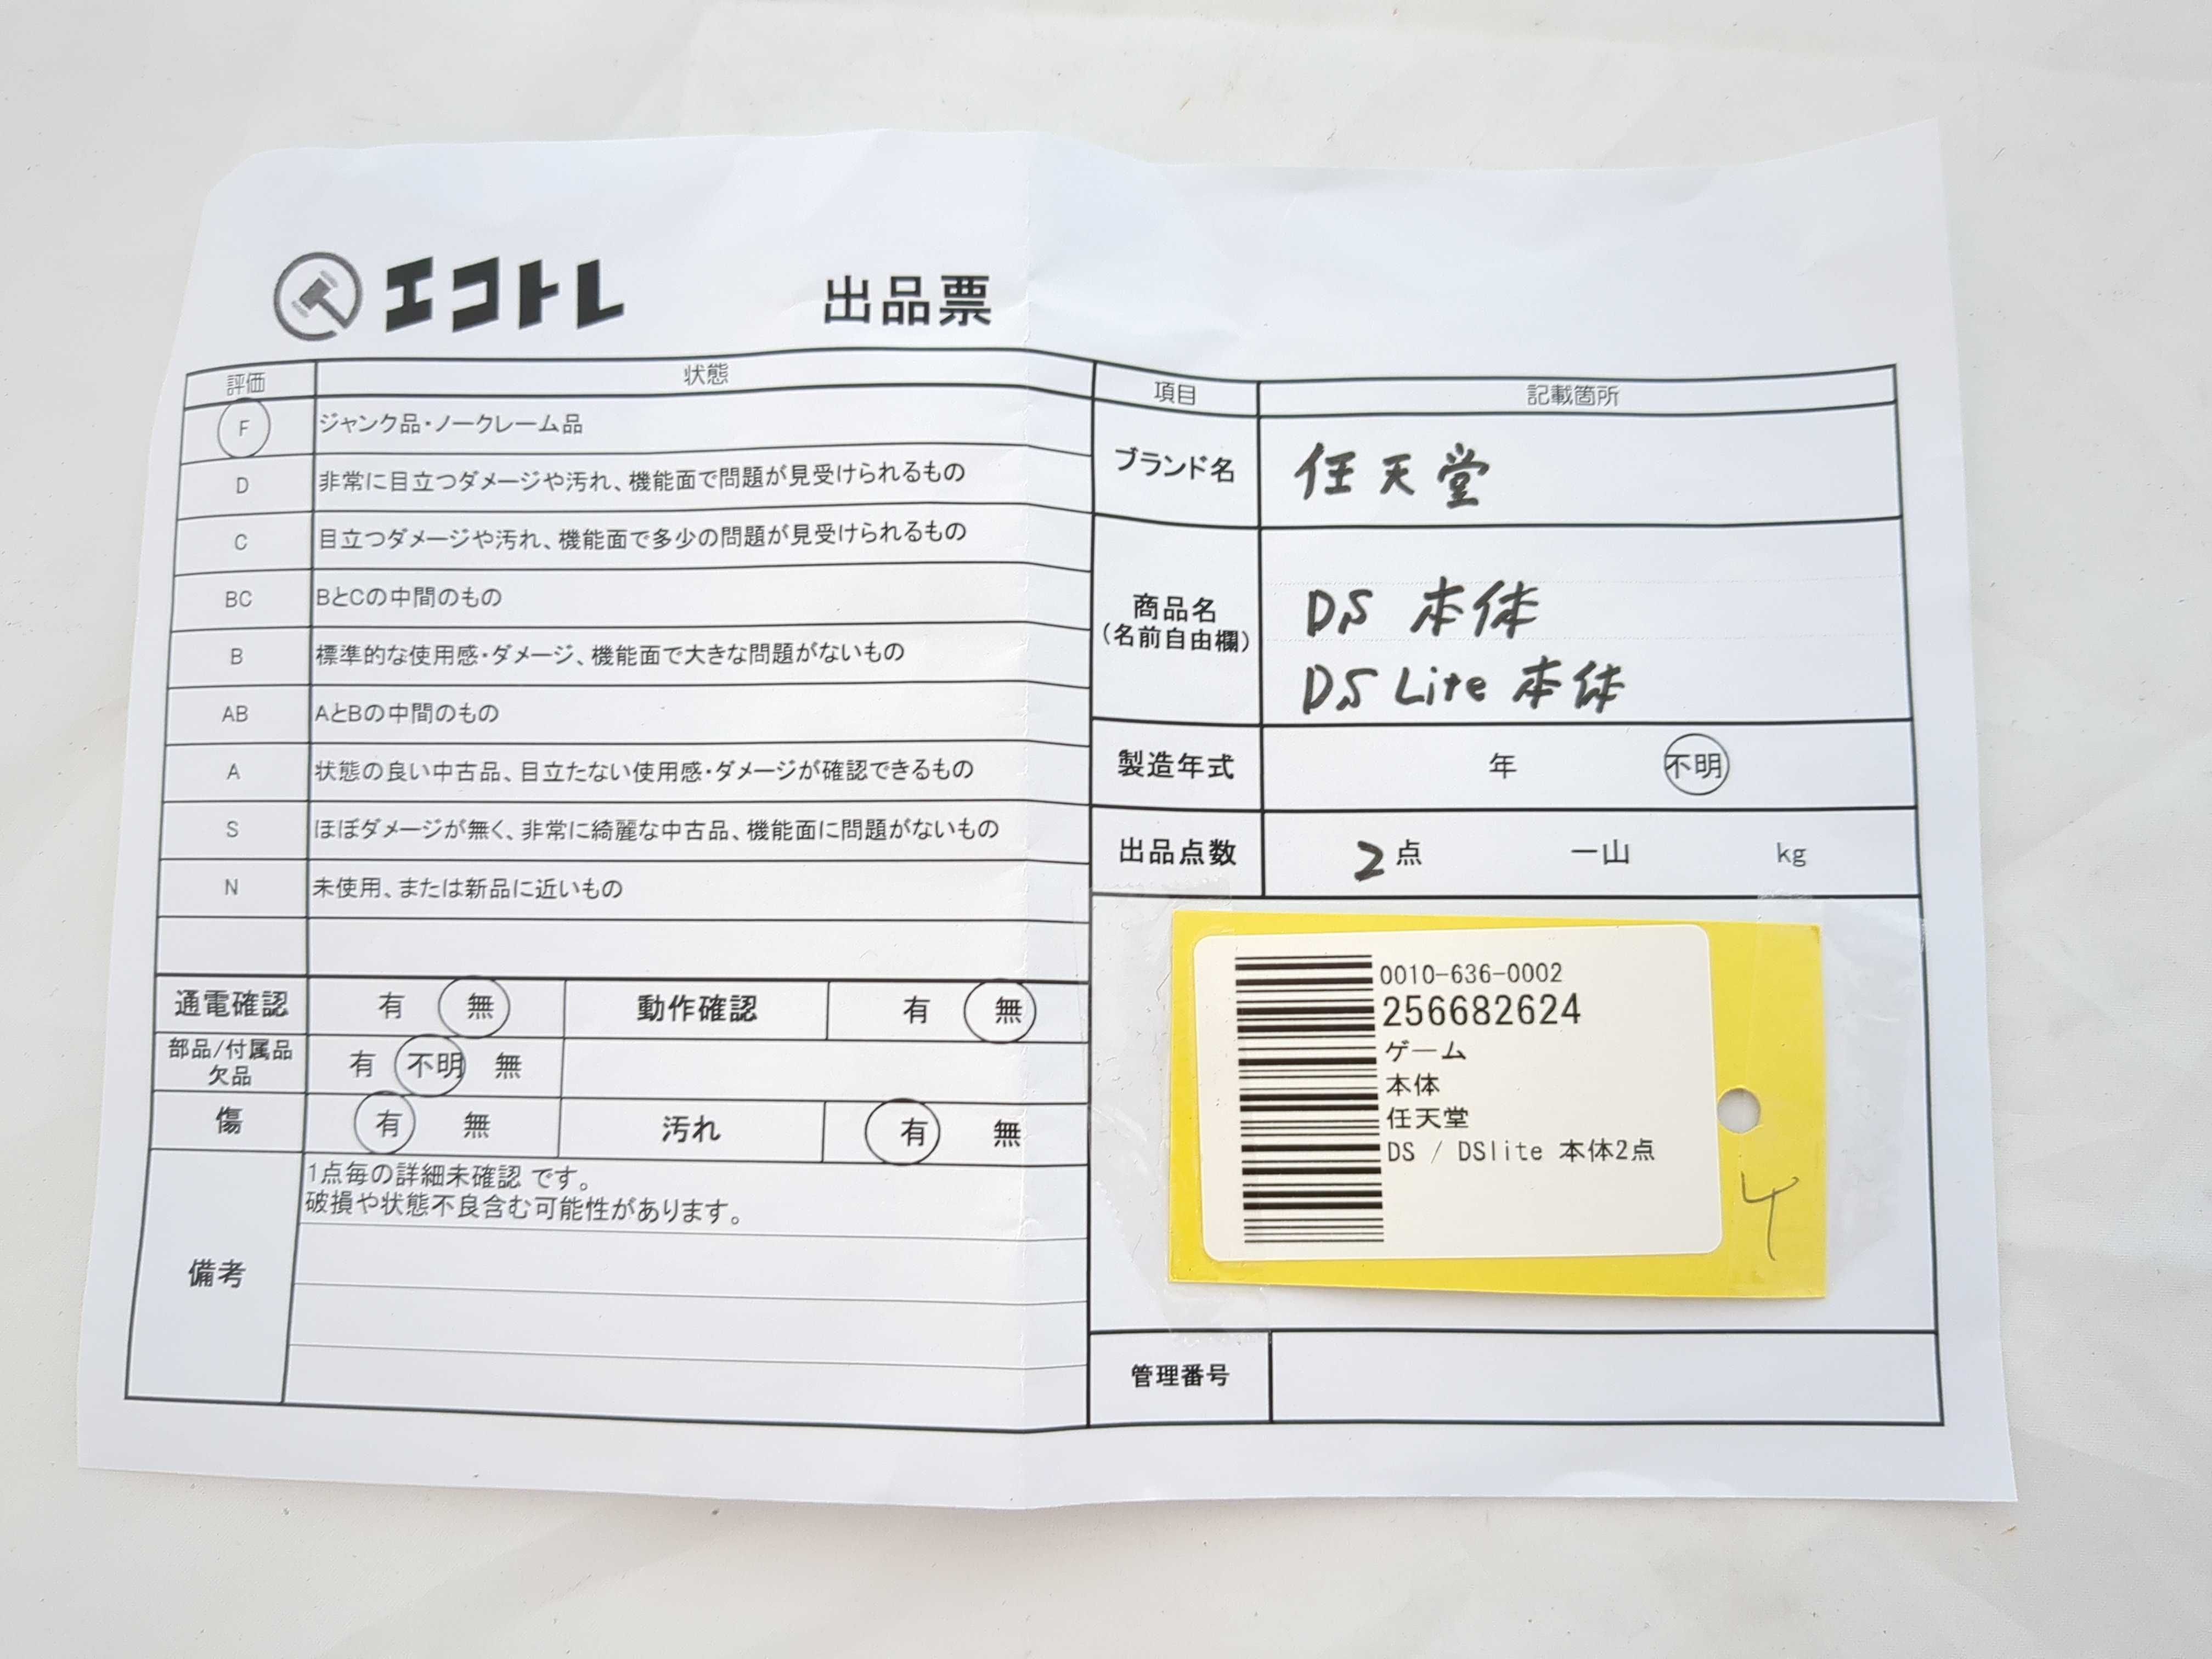 エコトレ
出品票
評価 状態
F ジャンク品・ノークレーム品
D 非常に目立つダメージや汚れ、機能面で問題が見受けられるもの
C 目立つダメージや汚れ、機能面で多少の問題が見受けられるもの
BC BとCの中間のもの
B 標準的な使用感・ダメージ、機能面で大きな問題がないもの
AB AとBの中間のもの
A 状態の良い中古品、目立たない使用感・ダメージが確認できるもの
S ほぼダメージが無く、非常に綺麗な中古品、機能面に問題がないもの
N 未使用、または新品に近いもの
通電確認 有 無 動作確認 有 無
部品/付属品
欠品 有 不明 無
傷 有 無 汚れ 有 無
備考
1点毎の詳細未確認 です。
破損や状態不良含む可能性があります。
項目 記載箇所
ブランド名 任天堂
商品名
(名前自由欄)
DS 本体
DS Lite 本体
製造年式 年 不明
出品点数 2点 一山 kg
0010-636-0002
256682624
ゲーム
本体
任天堂
DS / DSlite 本体2点
管理番号